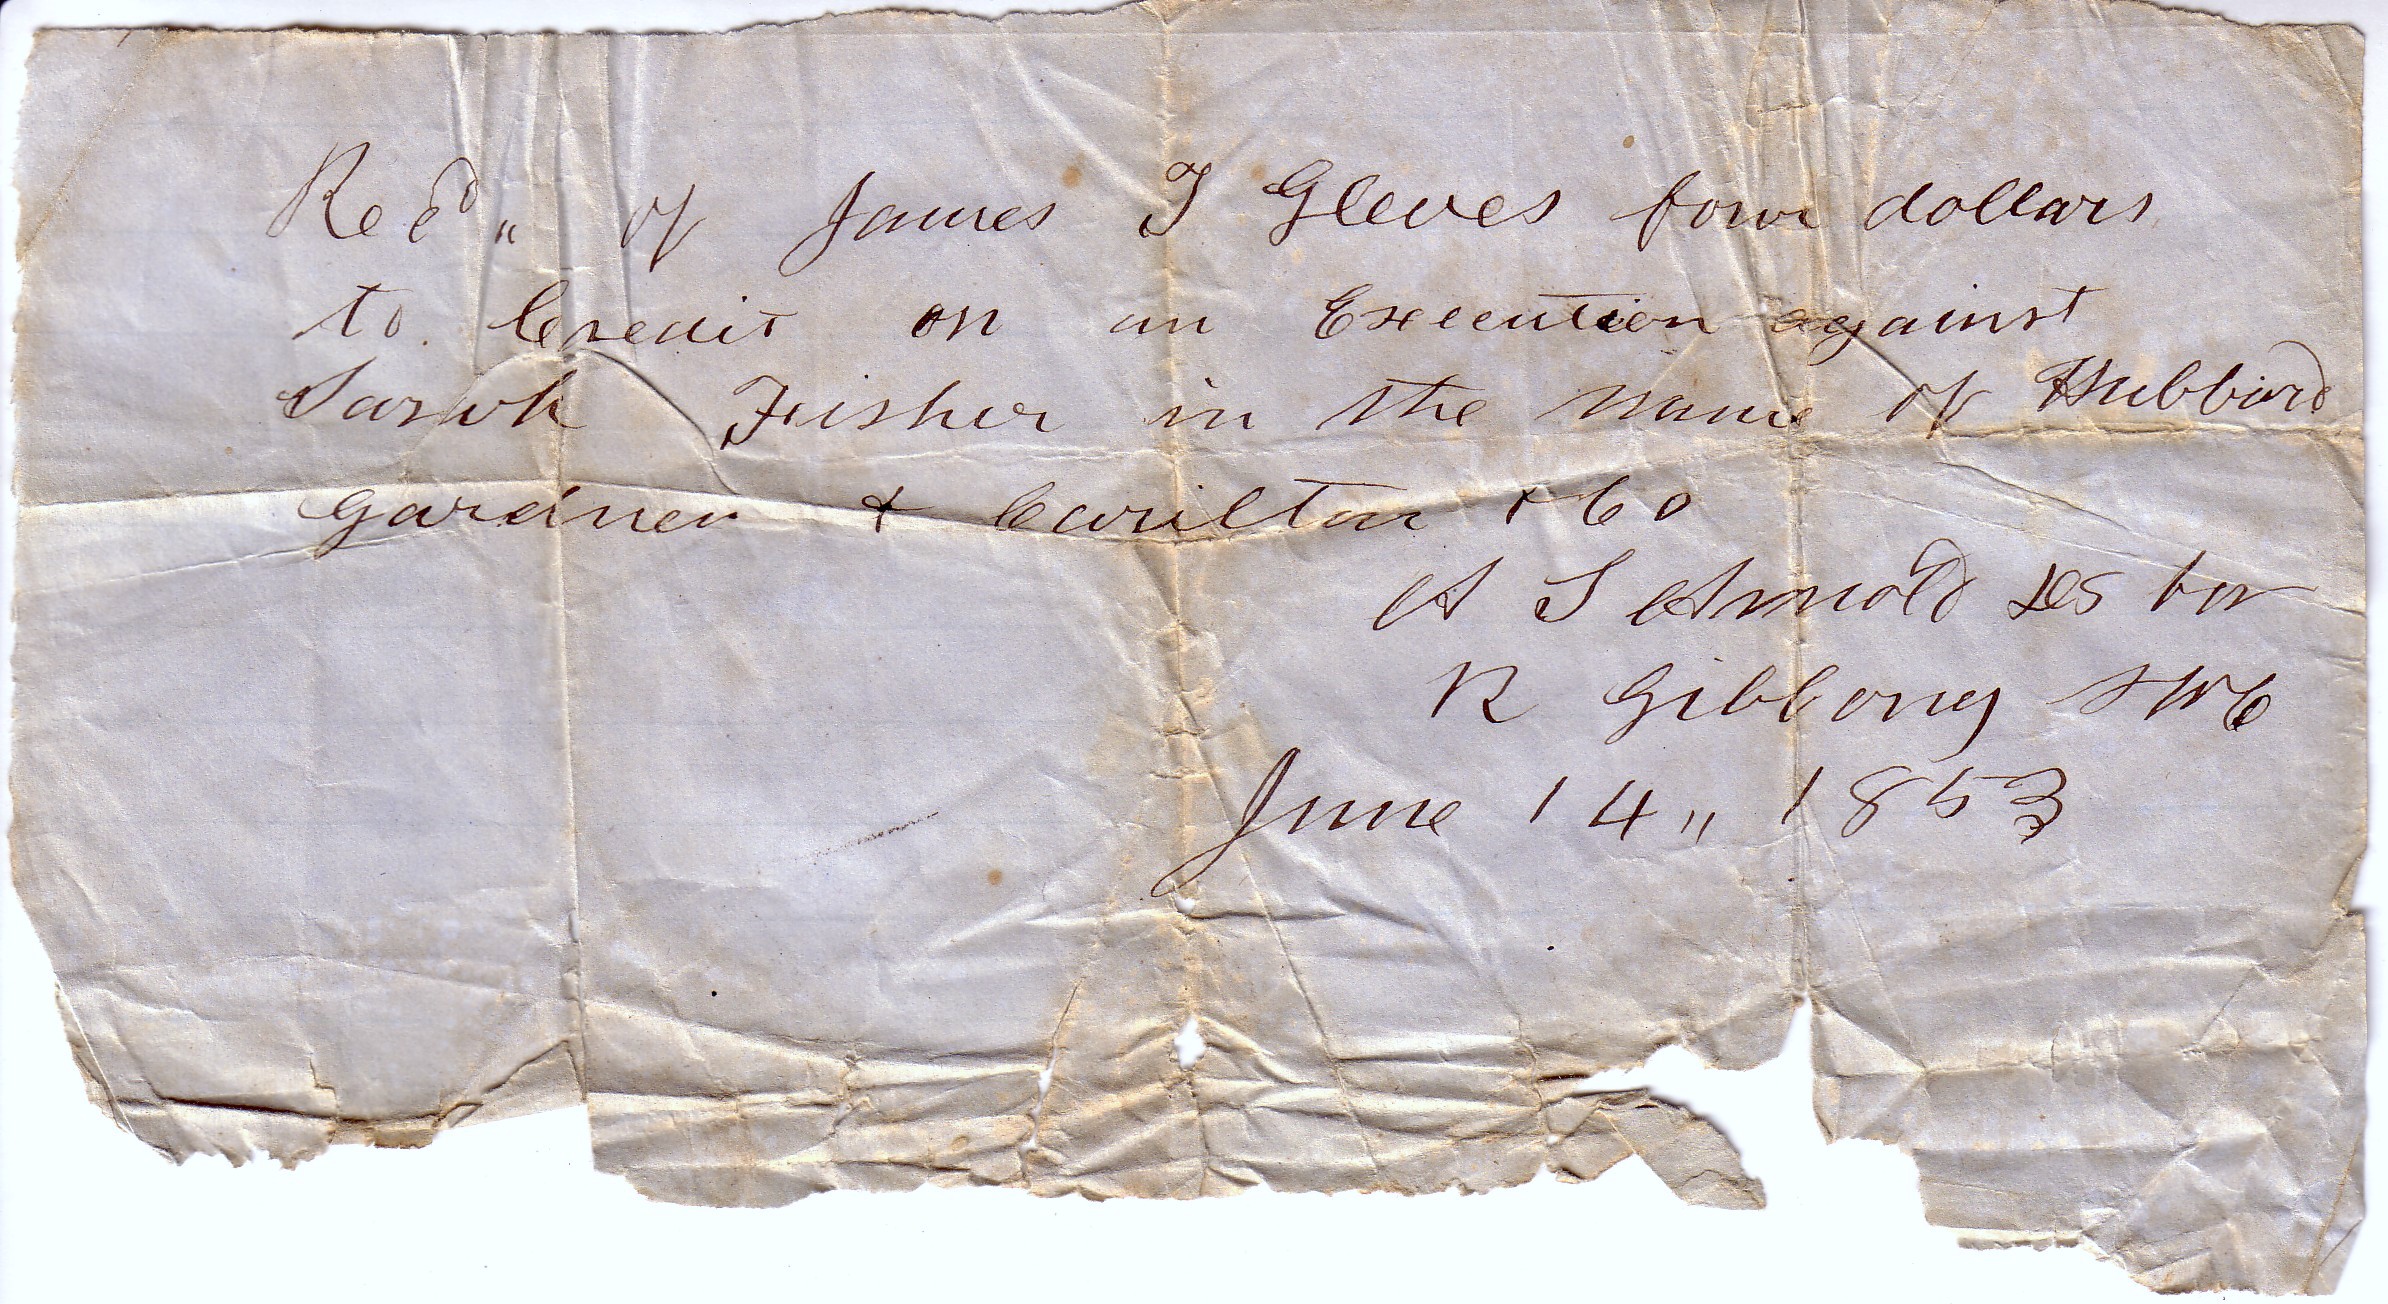 Recd " of James T Gleves four dollars
to Credit on an Execution against
Sarah Fisher in the name of Hubbard
Gardner & Carilton & Co
A S Arnold DS for
R Gibboney SWC
June 14 " 1853